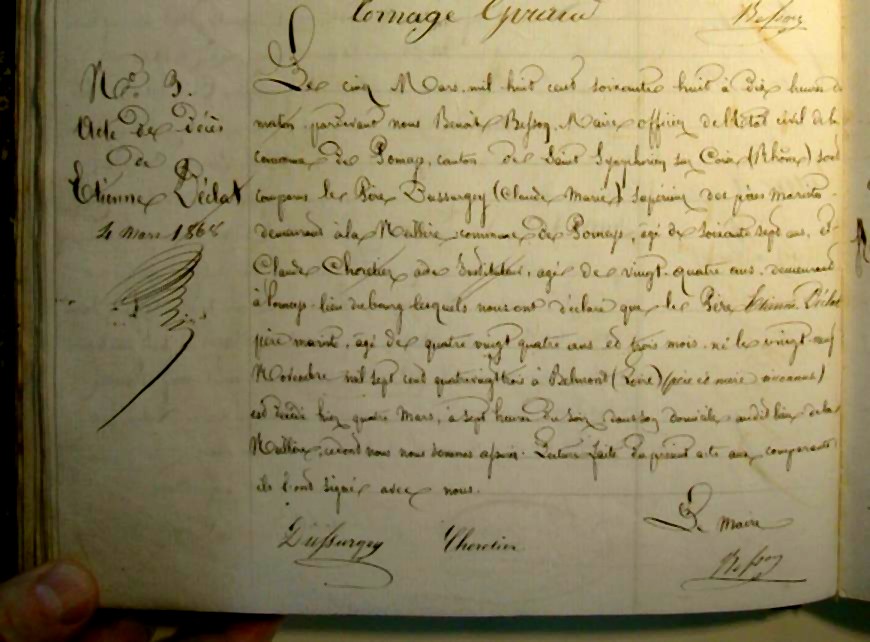 Besson
N° 3.
Acte de décès
de
Etienne Déclat
4 Mars 1868
Le cinq Mars mil huit cent soixante huit à dix heures du
matin, pardevant nous Benoit Besson, Maire officier de l'état civil de la
commune de Pomeys, canton de Saint Symphorien sur Coise (Rhône) sont
comparus le Père Dussurgey (Claude Marie) supérieur des pères maristes
demeurant à la Neylière, commune de Pomeys, âgé de soixante sept ans, et
Claude Choretier aide Instituteur, âgé de vingt-quatre ans, demeurant
à Pomeys lieu du bourg lesquels nous ont déclaré que le Père Etienne Déclat
père mariste, âgé de quatre vingt quatre ans et trois mois, né le vingt neuf
Novembre mil sept cent quatrevingttrois à Belmont (Loire) (père et mère inconnus)
est décédé hier quatre Mars, à sept heures du soir dans son domicile audit lieu de la
Neylière, cedont nous nous sommes assurés. Lecture faite du présent acte aux comparants
ils l'ont signé avec nous.
Le Maire
Dussurgey Choretier
Besson